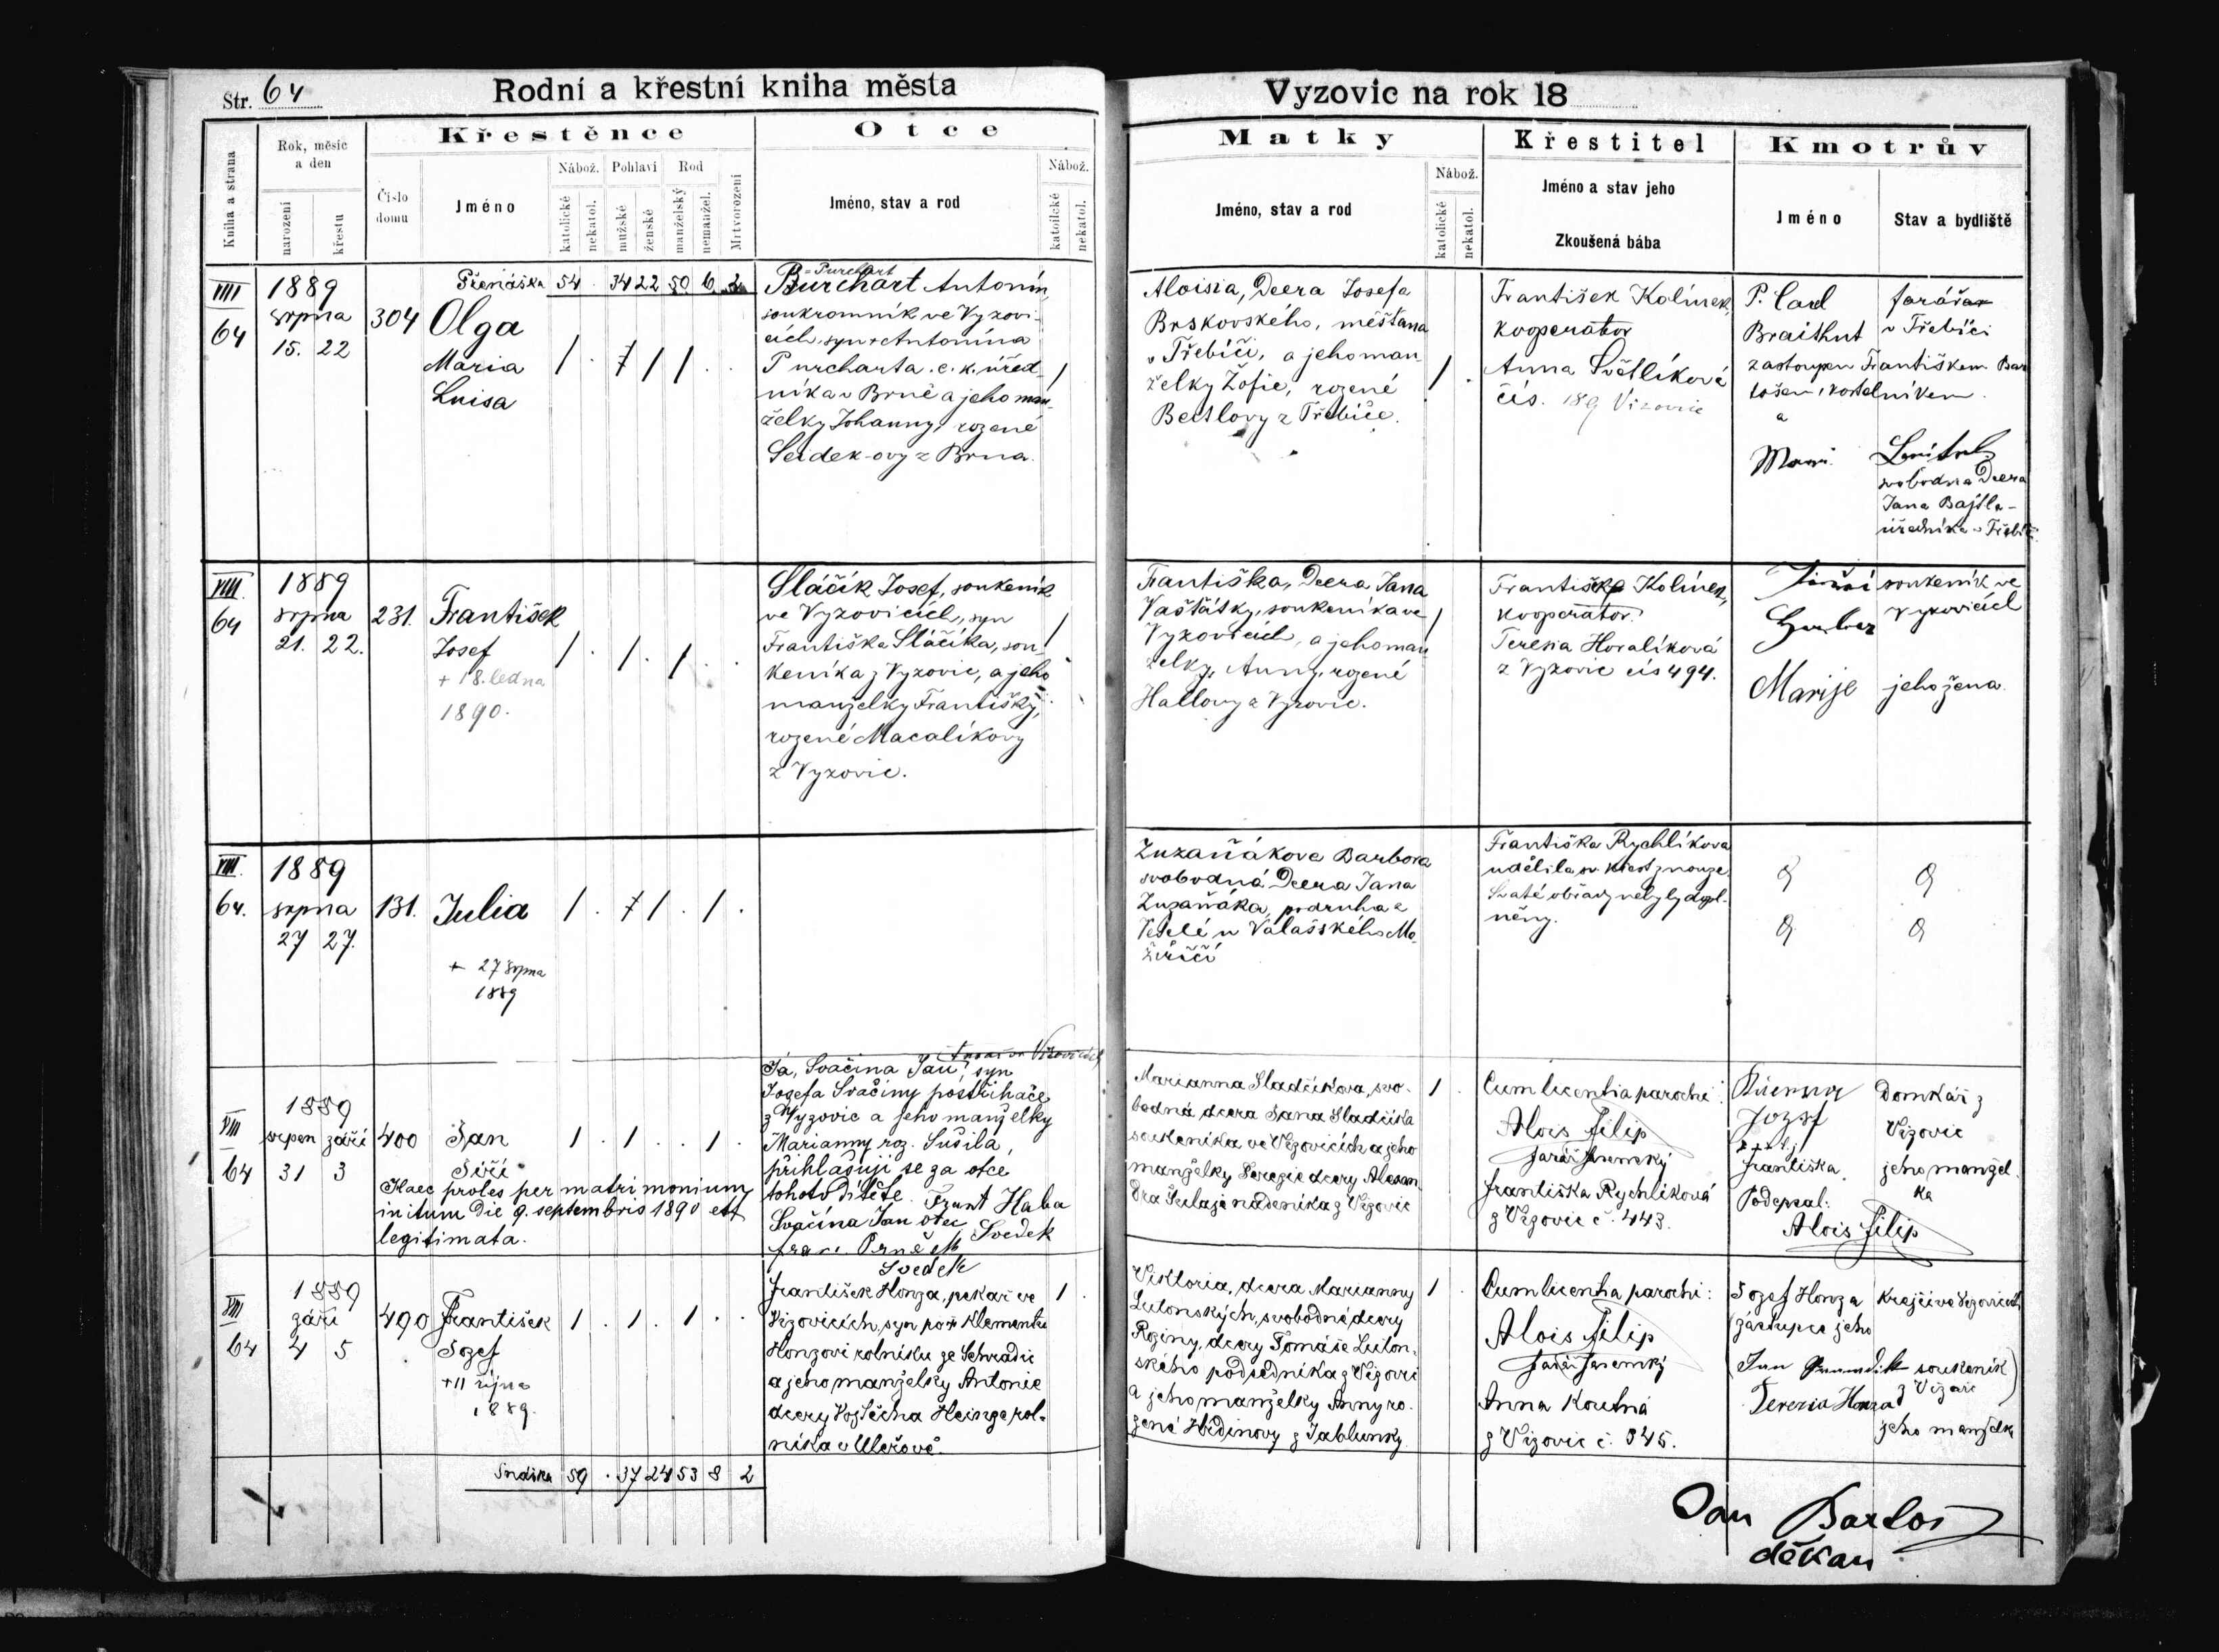 Str. 64
Rodní a křestní kniha města
Vyzovic na rok 18
Kniha a strana
Rok, měsíc a den
narození
křestu
Číslo domu
Křestěnce
Jméno
Nábož.
katolické
nekatol.
Pohlaví
mužské
ženské
Rod
manželský
nemanžel.
Mrtvorození
Otce
Jméno, stav a rod
Nábož.
katolické
nekatol.
Matky
Jméno, stav a rod
Nábož.
katolické
nekatol.
Křestitel
Jméno a stav jeho
Zkoušená bába
Kmotrův
Jméno
Stav a bydliště
Přenáška 54 . 34 22 50 6 2
VIII
64
1889
srpna
15. 22
304
Olga
Maria
Luisa
= Purchart
Burchart Antonín,
soukromník ve Vyzovi-
cích, syn + Antonína
Purcharta c. k. úřed-
níka v Brně a jeho man-
želky Johanny, rozené
Seidek-ovy z Brna.
Aloisia, Dcera Josefa
Brskovského, měšťana
v Třebíči, a jeho man-
želky Žofie, rozené
Beitlovy z Třebíče.
František Kolínek,
kooperátor
Anna Světlíková
čís. 189 Vizovic
P. Carl
Braithut
farářa
v Třebíči
zastoupen Františkem Bar
tošem, kostelníkem
a
svobodna Dcera
Jana Bajtla -
úředníka v Třebíči
VIII.
64
1889
srpna
21. 22.
231.
František
Josef
+ 18. ledna
1890.
Sláčík Josef, soukeník
ve Vyzovicích, syn
Františka Sláčíka, sou-
keníka z Vyzovic, a jeho
manželky Františky,
rozené Macalíkovy
z Vyzovic.
Františka, Dcera Jana
Vašťátky, soukeníka ve
Vyzovicích, a jeho man
želky, Anny, rozené
Hallovy z Vyzovic.
František Kolínek,
kooperátor.
Teresia Horalíková
z Vyzovic čís 494.
Jiří
soukeník ve
Vyzovicích
Marije
jeho žena.
VIII.
64.
1889
srpna
27 27.
131.
Julia
+ 27 srpna
1889
Zuzaňákova Barbora
svobodná Dcera Jana
Zuzaňáka, podruha z
Veselé u Valašského Me-
ziříčí
Františka Rychlíkova
udělila sv. křest z nouze.
Svaté obřady nebyly dopl-
něny.
VIII
64
1889
srpen září
31 3
400
Jan
Jiří
Haec proles per matrimonium
initum die 9. septembris 1890 est
legitimata.
Já, Svačina Jan, syn
Jozefa Svačiny postřihače
z Vyzovic a jeho manželky
Marianny roz. Sušila,
přihlašuji se za otce
tohoto dítěte. Ignat Haba
Svačina Jan otec Svedek
Svedek
Marianna Sladčíkova, svo-
bodná dcera Jana Sladčíka
soukeníka ve Vizovicích a jeho
manželky Terezie dcery Alexan-
dra Šulaja nádeníka z Vizovic
Cum licentia parochi:
Alois Filip
farář Jasenský
Františka Rychlíková
z Vizovic č. 443.
Jozef
Domkář z
Vizovic
Františka
jeho manžel
ka
Podepsal:
Alois Filip
VIII
64
1889
září
4 5
490
František
Jozef
+ 11 října
1889.
František Honza, pekař ve
Vizovicích, syn po + Klementu
Honzovi rolníku ze Sehradic
a jeho manželky Antonie
dcery Vojtěcha Heinze rol-
níka v Uleřově.
Viktoria, dcera Marianny
Lutonských, svobodné dcery
Roziny, dcery Tomáše Luton-
ského podsedníka z Vizovic
a jeho manželky Anny ro-
zené Hědinovy z Jablunky.
Cum licentia parochi:
Alois Filip
farář Jasenský
Anna Koutná
z Vizovic č. 345.
Jozef Honza
krejčí ve Vizovicích
zástupce jeho
(Jan
soukeník
z Vizovic)
Terezia Honza
jeho manželka
59 . 37 24 53 8 2
Jan Bartoš
děkan